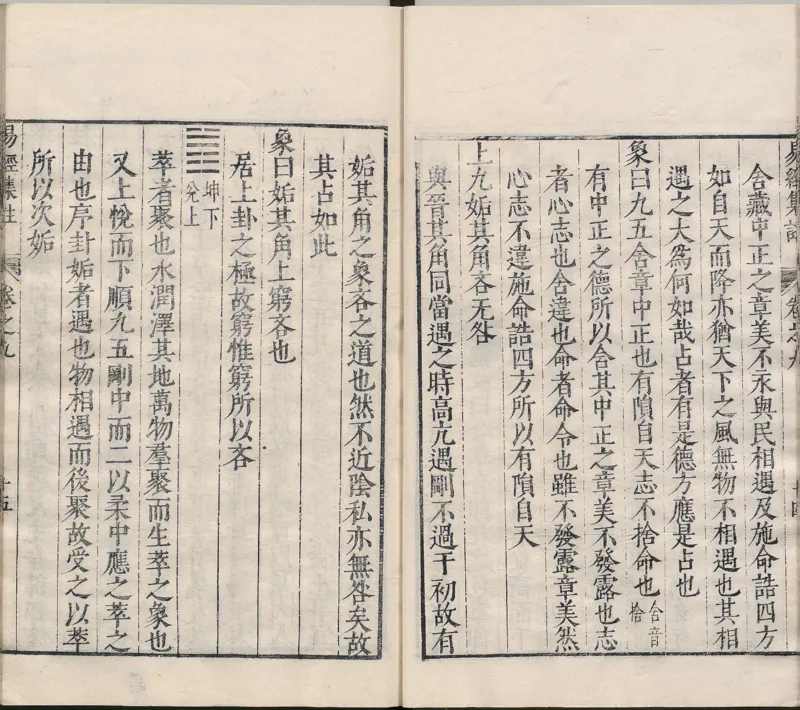 含藏中正之章美不求與民相遇及施命誥四方
如自天而降亦猶天下之風無物不相遇也其相
遇之大為何如哉占者有是德方應是占也
象曰九五含章中正也有隕自天志不捨命也 舍音捨
有中正之德所以含其中正之章美不發露也志
者心志也舍違也命者命令也雖不發露章美然
心志不違施命誥四方所以有隕自天
上九姤其角吝无咎
與晉其角同當遇之時高亢遇剛不過于初故有
姤其角之象吝之道也然不近陰私亦無咎矣故
其占如此
象曰姤其角上窮吝也
居上卦之極故窮惟窮所以吝
坤下兌上
萃者聚也水潤澤其地萬物羣聚而生萃之象也
又上悅而下順九五剛中而二以柔中應之萃之
由也序卦姤者遇也物相遇而後聚故受之以萃
所以次姤
易經集註 卷之九 十五